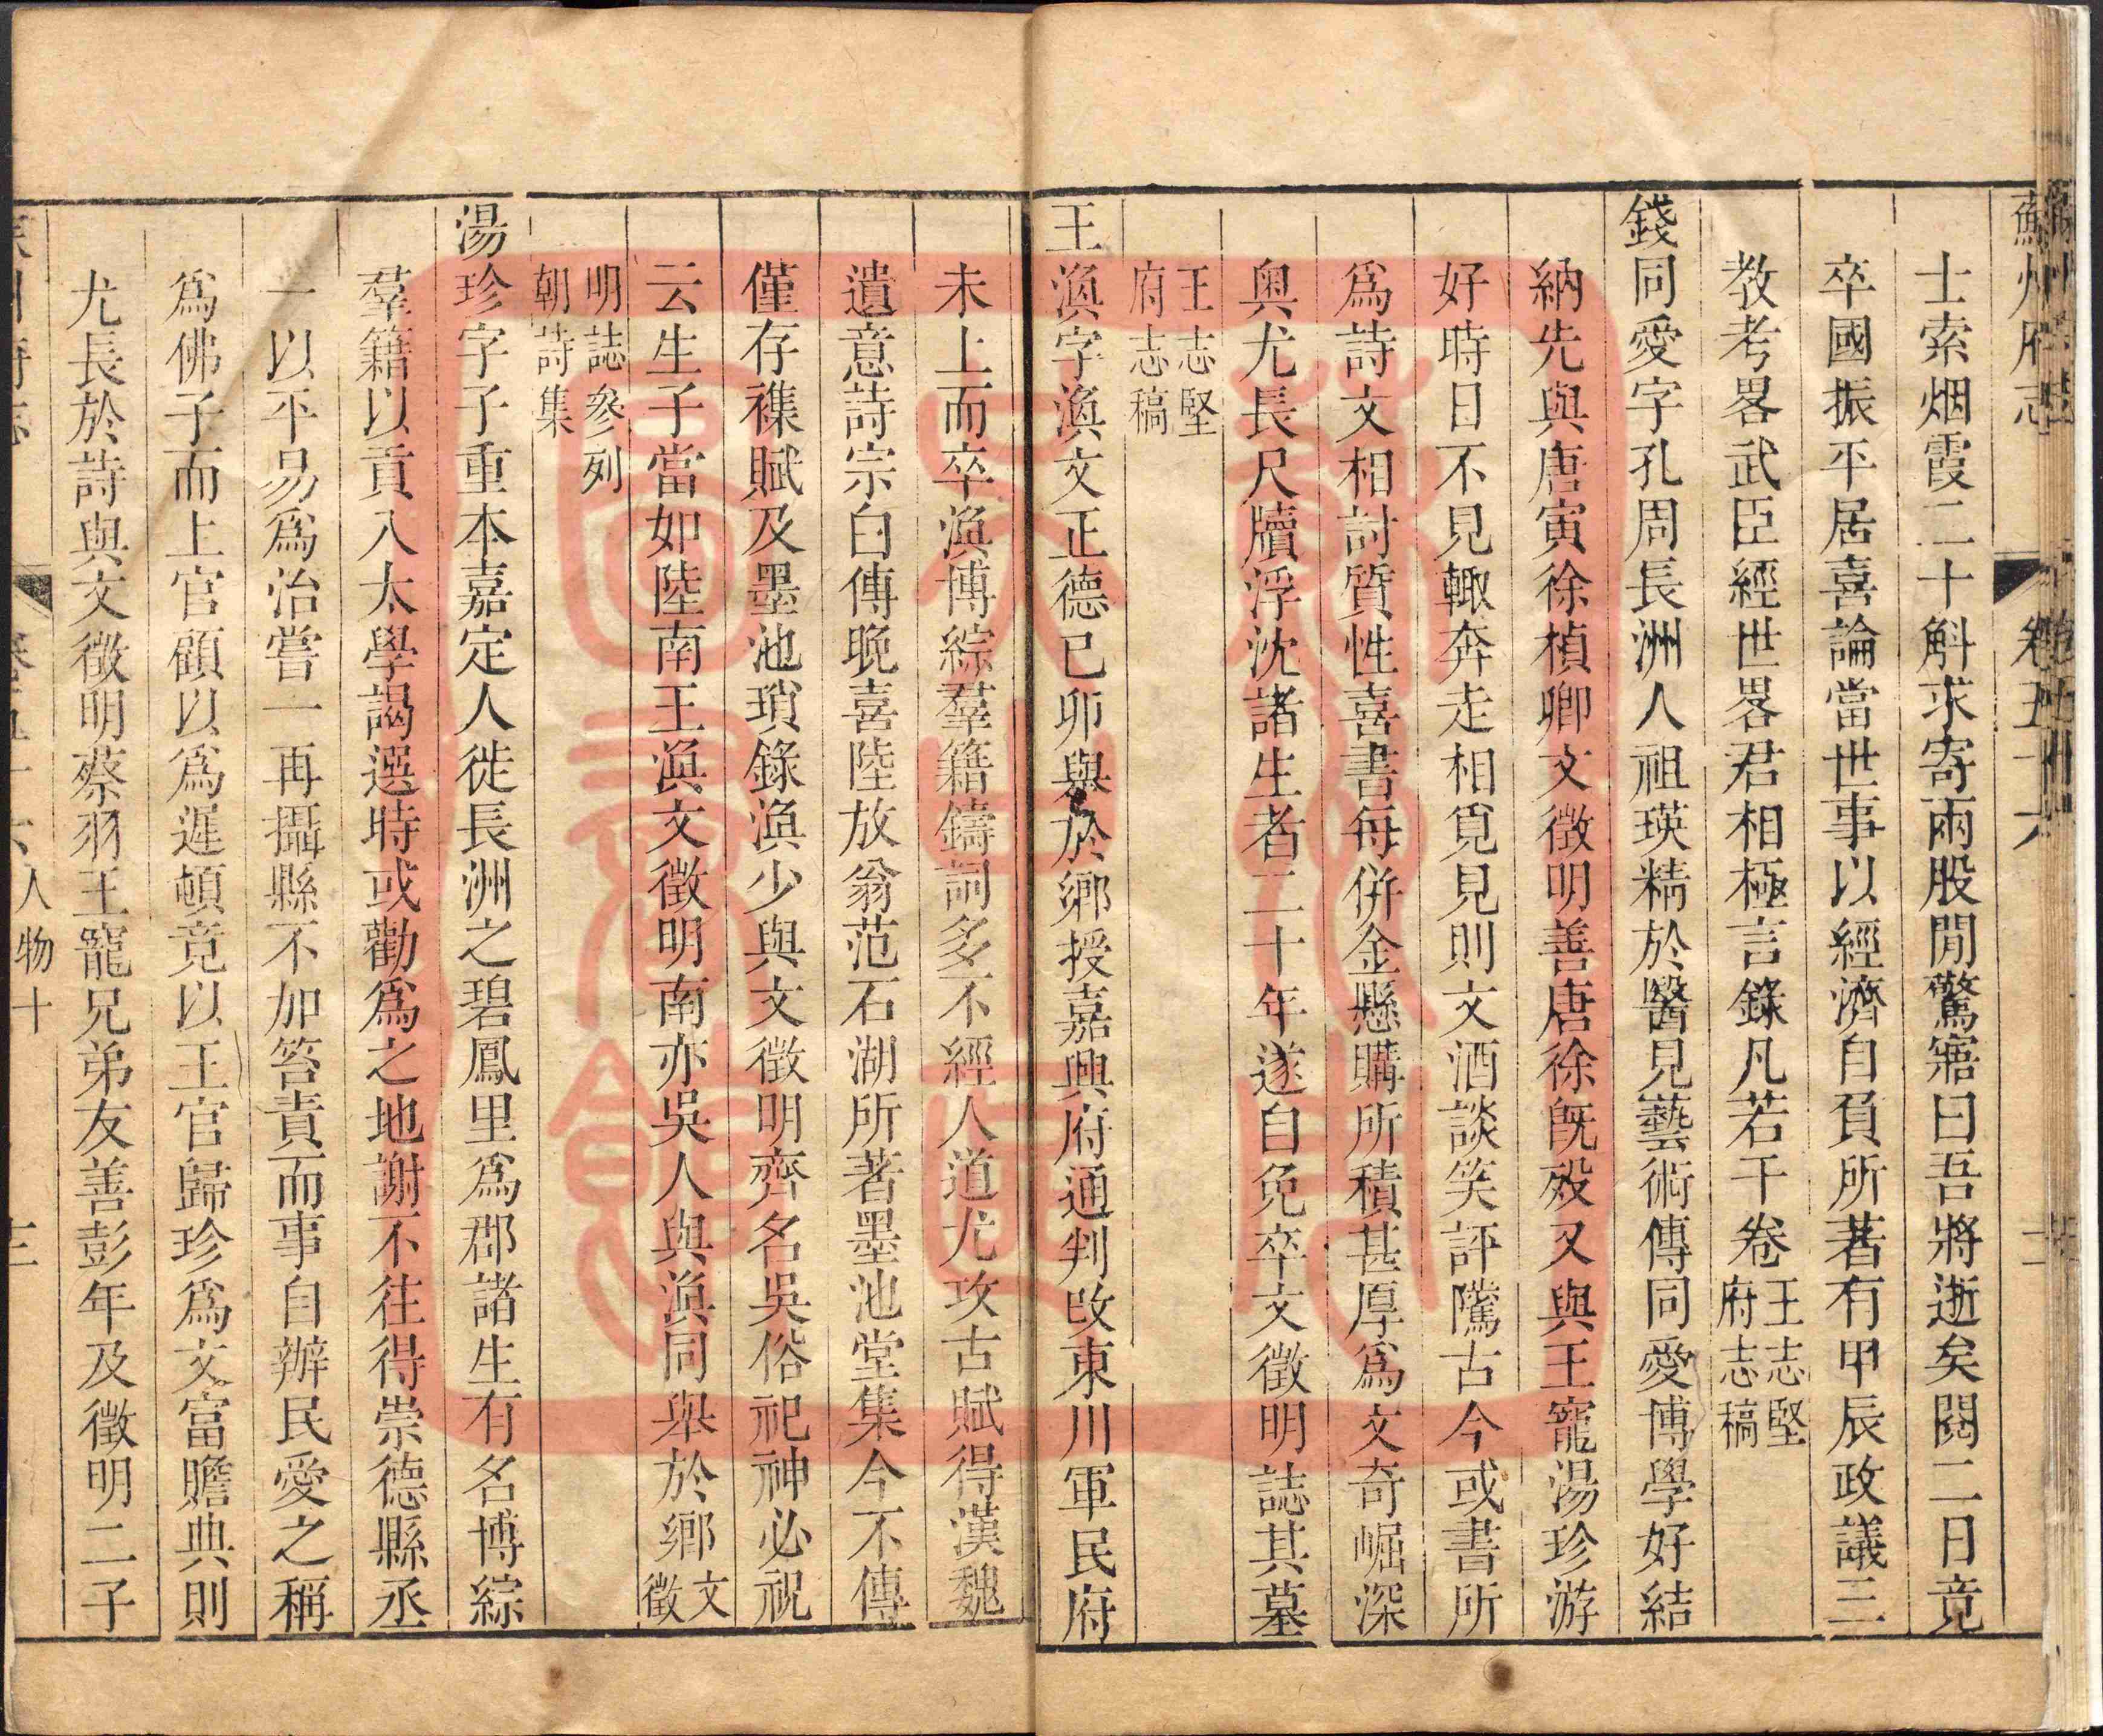 蘇州府志 卷五十六
士索烟霞二十斛求寄兩股閒驚寤曰吾將逝矣閱二日竟
卒國振平居喜論當世事以經濟自負所著有甲辰政議三
教考畧武臣經世畧君相極言錄凡若干卷王志堅府志稿
錢同愛字孔周長洲人祖瑛精於醫見藝術傳同愛博學好結
納先與唐寅徐楨卿文徵明善唐徐旣歿又與王寵湯珍游
好時日不見輙奔走相覓見則文酒談笑評隲古今或書所
爲詩文相討質性喜書每併金懸購所積甚厚爲文奇崛深
奥尤長尺牘浮沈諸生者二十年遂自免卒文徵明誌其墓
王志堅府志稿
王渙字渙文正德已卯舉於鄉授嘉興府通判改東川軍民府
未上而卒渙博綜羣籍鑄詞多不經人道尤攻古賦得漢魏
遺意詩宗白傅晚喜陸放翁范石湖所著墨池堂集今不傳
僅存襍賦及墨池瑣錄渙少與文徵明齊名吳俗祀神必祝
云生子當如陸南王渙文徵明南亦吳人與渙同舉於鄉文徵
明誌參列朝詩集
湯珍字子重本嘉定人徙長洲之碧鳳里爲郡諸生有名博綜
羣籍以貢入太學謁選時或勸爲之地謝不往得崇德縣丞
一以平易爲治嘗一再攝縣不加笞責而事自辦民愛之稱
爲佛子而上官顧以爲遲頓竟以王官歸珍爲文富贍典則
尤長於詩與文徵明蔡羽王寵兄弟友善彭年及徵明二子
卷五十六人物十 三